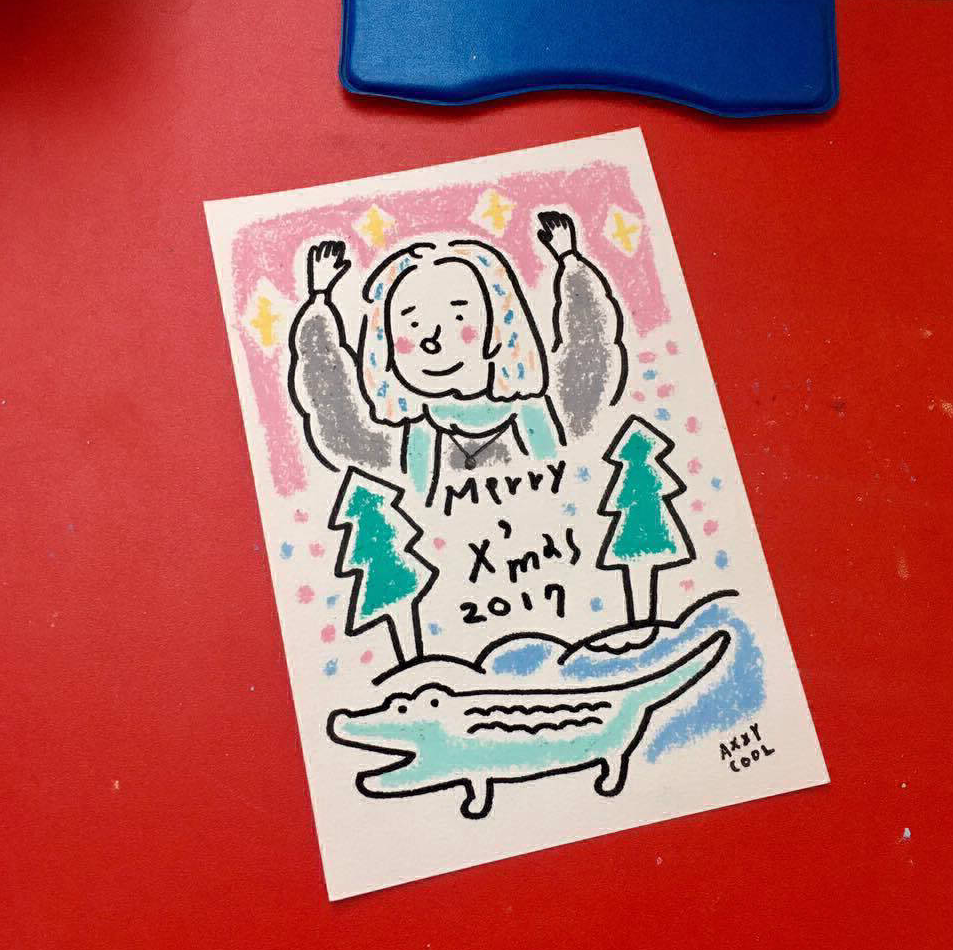 Merry
X'mas
2017
AXXY
COOL